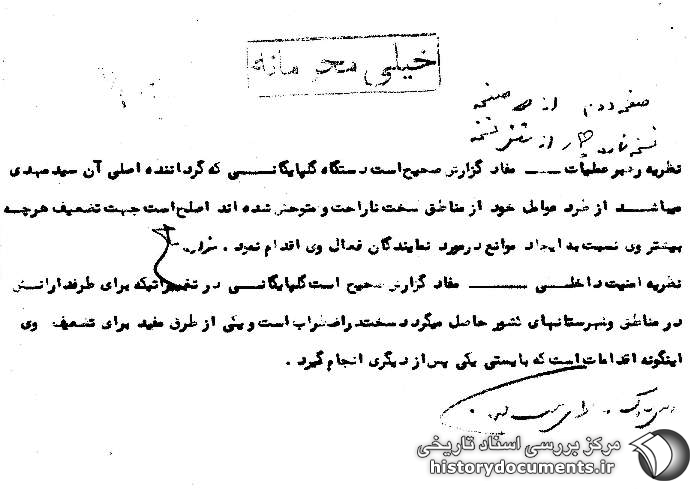 خیلی محرمانه
صفحه دوم از صفحه
نسخه از نسخه
نظریه رهبر عملیات ــ مفاد گزارش صحیح است دستگاه گلپایگانــی که گرداننده اصلی آن سید مهدی
میباشد از طرد عوامل خود از مناطق سخت ناراحت و متوحش شده اند اصلح است جهت تضعیف هرچه
بیشتر وی نسبت به ایجاد موانع در مورد نمایندگان فعال وی اقدام نمود .
نظریه امنیت داخلــی ــــ مفاد گزارش صحیح است گلپایگانــی در تغییراتیکه برای طرفدارانش
در مناطق و شهرستانهای کشور حاصل میگردد سخت در اضطراب است و یکی از طرق مفید برای تضعیف وی
اینگونه اقدامات است که بایستی یکی پس از دیگری انجام گیرد .
مرکز بررسی اسناد تاریخی
historydocuments.ir